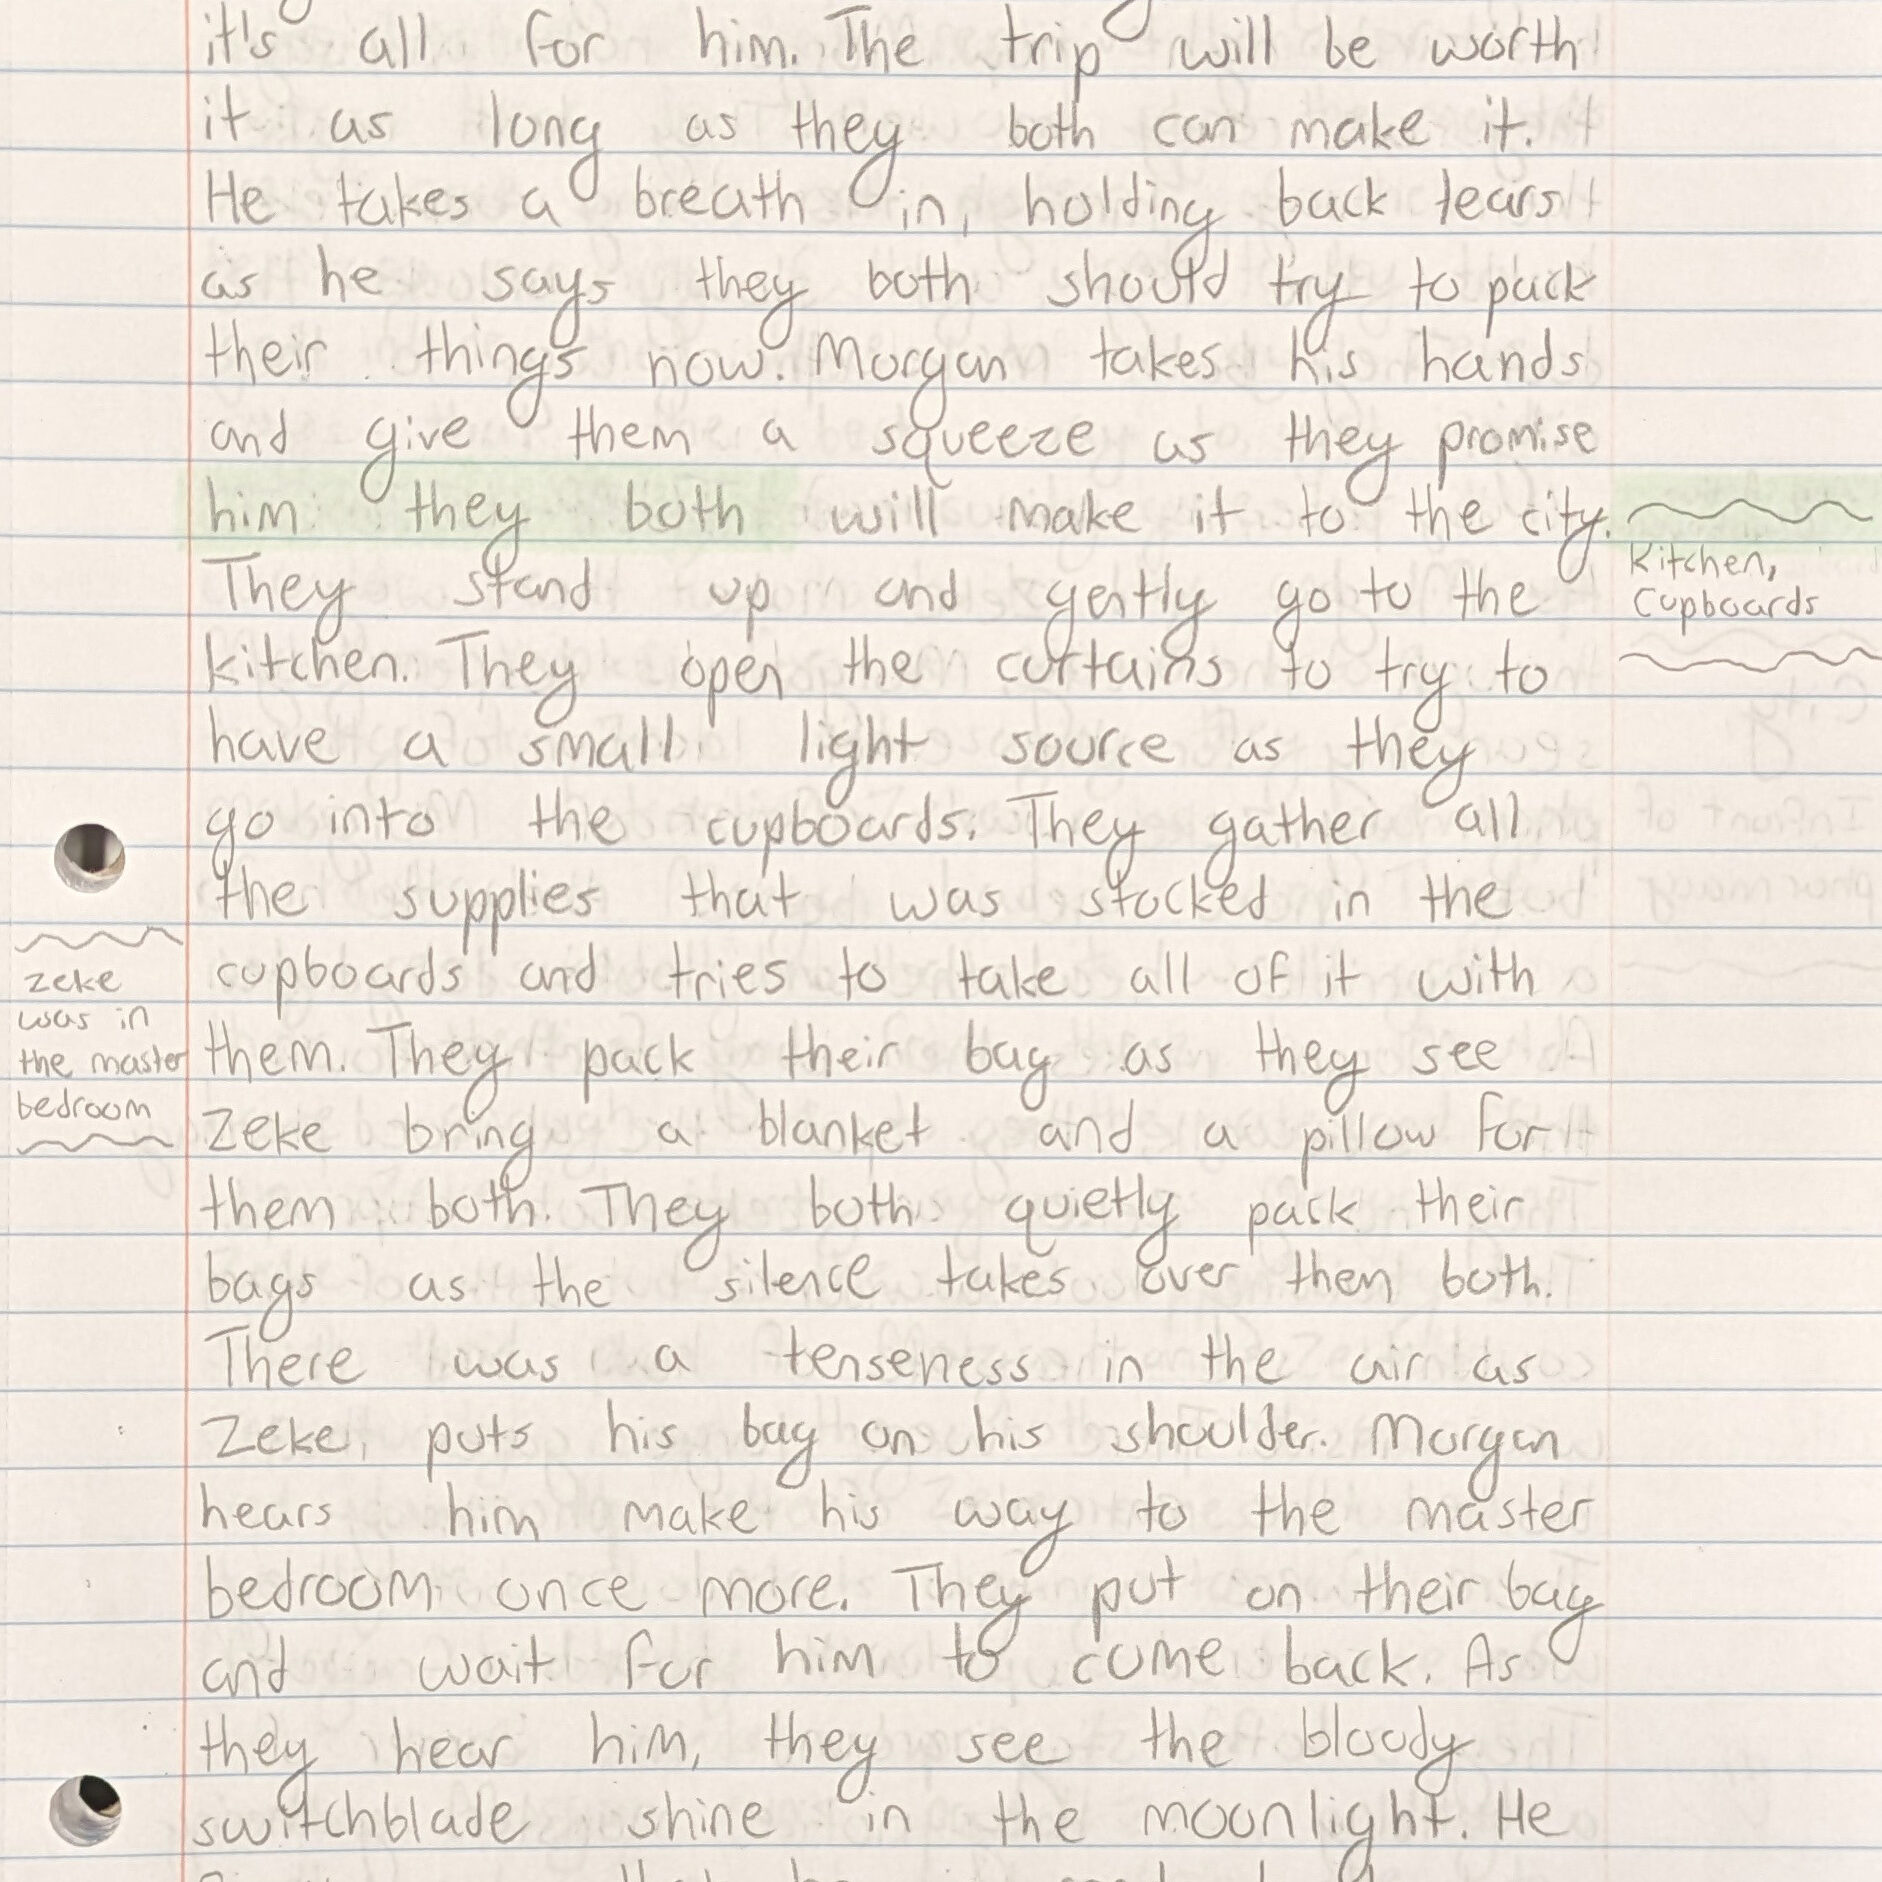 it's all for him. The trip will be worth
it as long as they both can make it.
He takes a breath in, holding back tears
as he says they both should try to pack
their things now. Morgan takes his hands
and give them a squeeze as they promise
him they both will make it to the city.
They stand up and gently go to the
kitchen. They open the curtains to try to
have a small light source as they
go into the cupboards. They gather all
the supplies that was stocked in the
cupboards and tries to take all of it with
them. They pack their bag as they see
Zeke bring a blanket and a pillow for
them both. They both quietly pack their
bags as the silence takes over them both.
There was a tenseness in the air as
Zeke puts his bag on his shoulder. Morgan
hears him make his way to the master
bedroom once more. They put on their bag
and wait for him to come back. As
they hear him, they see the bloody
switchblade shine in the moonlight. He
Kitchen,
Cupboards
zeke
was in
the master
bedroom